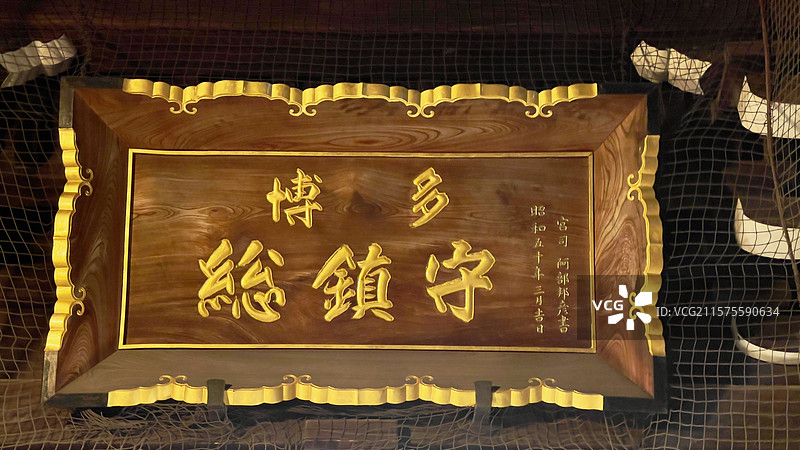 博多
総鎮守
昭和五十年三月吉日
宮司 阿部邦彦書
VCG
ID: VCG211575590634